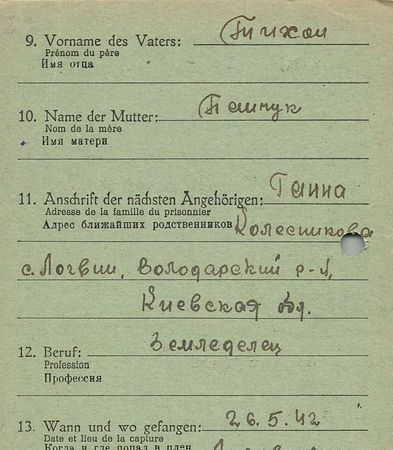 9. Vorname des Vaters: Тихон
Prénom du père
Имя отца
10. Name der Mutter:
Nom de la mère
Имя матери
11. Anschrift der nächsten Angehörigen: Ганна
Adresse de la famille du prisonnier
Адрес ближайших родственников Колесникова
с. Логвин, Володарский р-н,
Киевская обл.
12. Beruf: Земледелец
Profession
Профессия
13. Wann und wo gefangen: 26.5.42
Date et lieu de la capture
Когда и где попал в плен